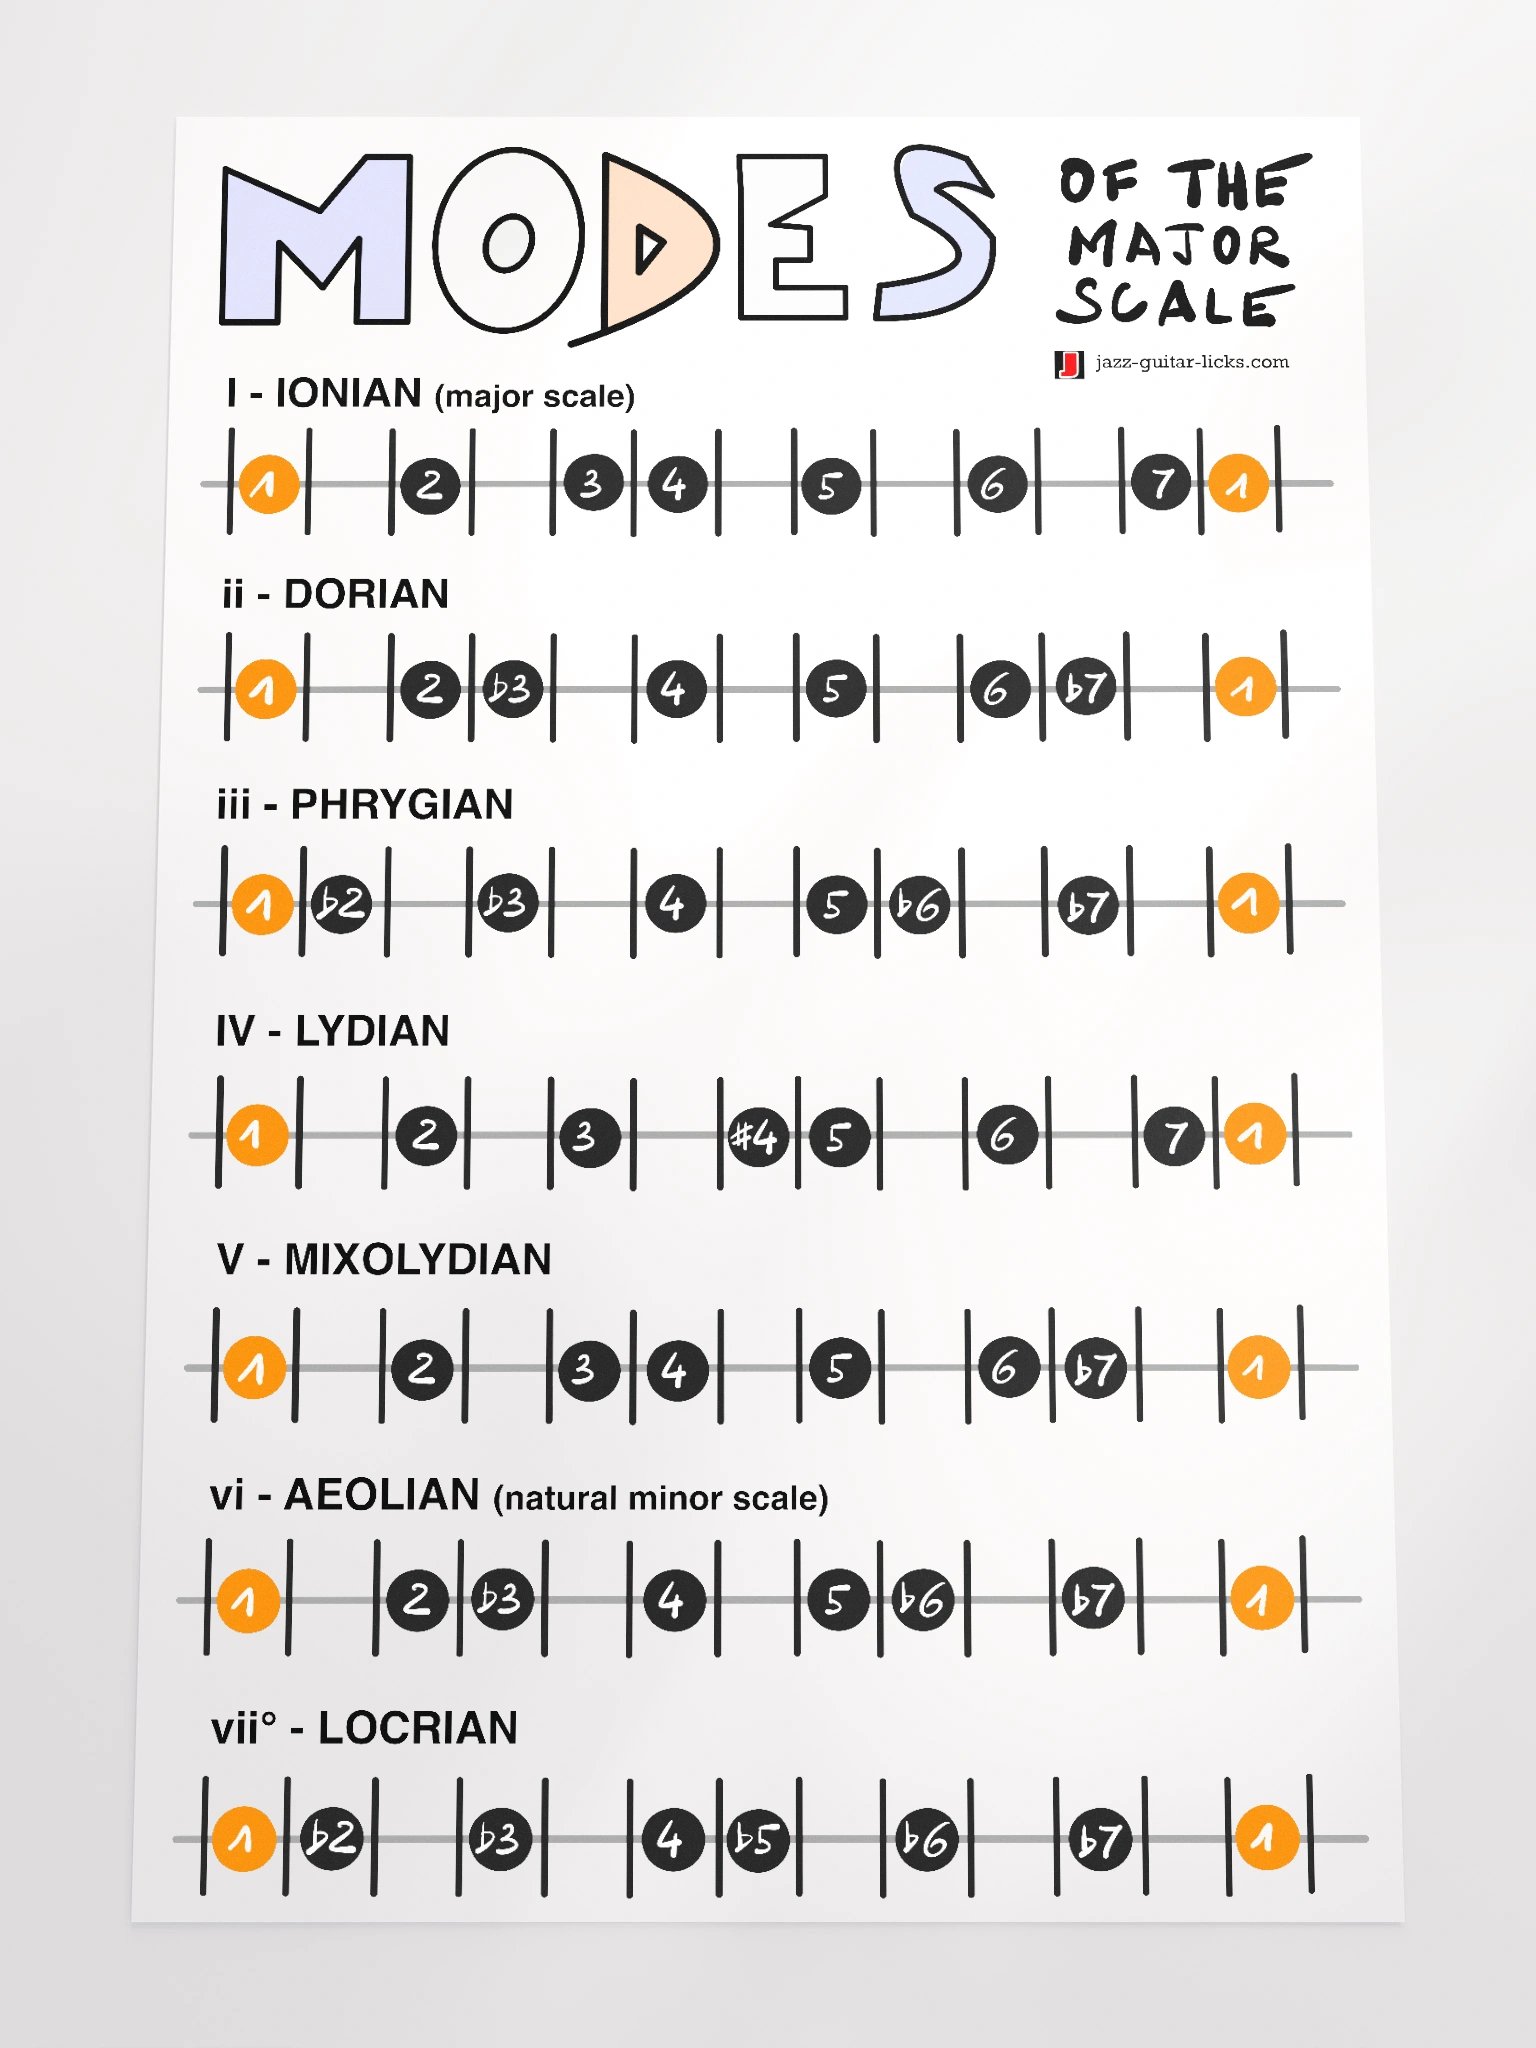 MODES
OF THE
MAJOR
SCALE
J jazz-guitar-licks.com
I - IONIAN (major scale)
1 2 3 4 5 6 7 1
ii - DORIAN
1 2 ♭3 4 5 6 ♭7 1
iii - PHRYGIAN
1 ♭2 ♭3 4 5 ♭6 ♭7 1
IV - LYDIAN
1 2 3 #4 5 6 7 1
V - MIXOLYDIAN
1 2 3 4 5 6 ♭7 1
vi - AEOLIAN (natural minor scale)
1 2 ♭3 4 5 ♭6 ♭7 1
vii° - LOCRIAN
1 ♭2 ♭3 4 ♭5 ♭6 ♭7 1